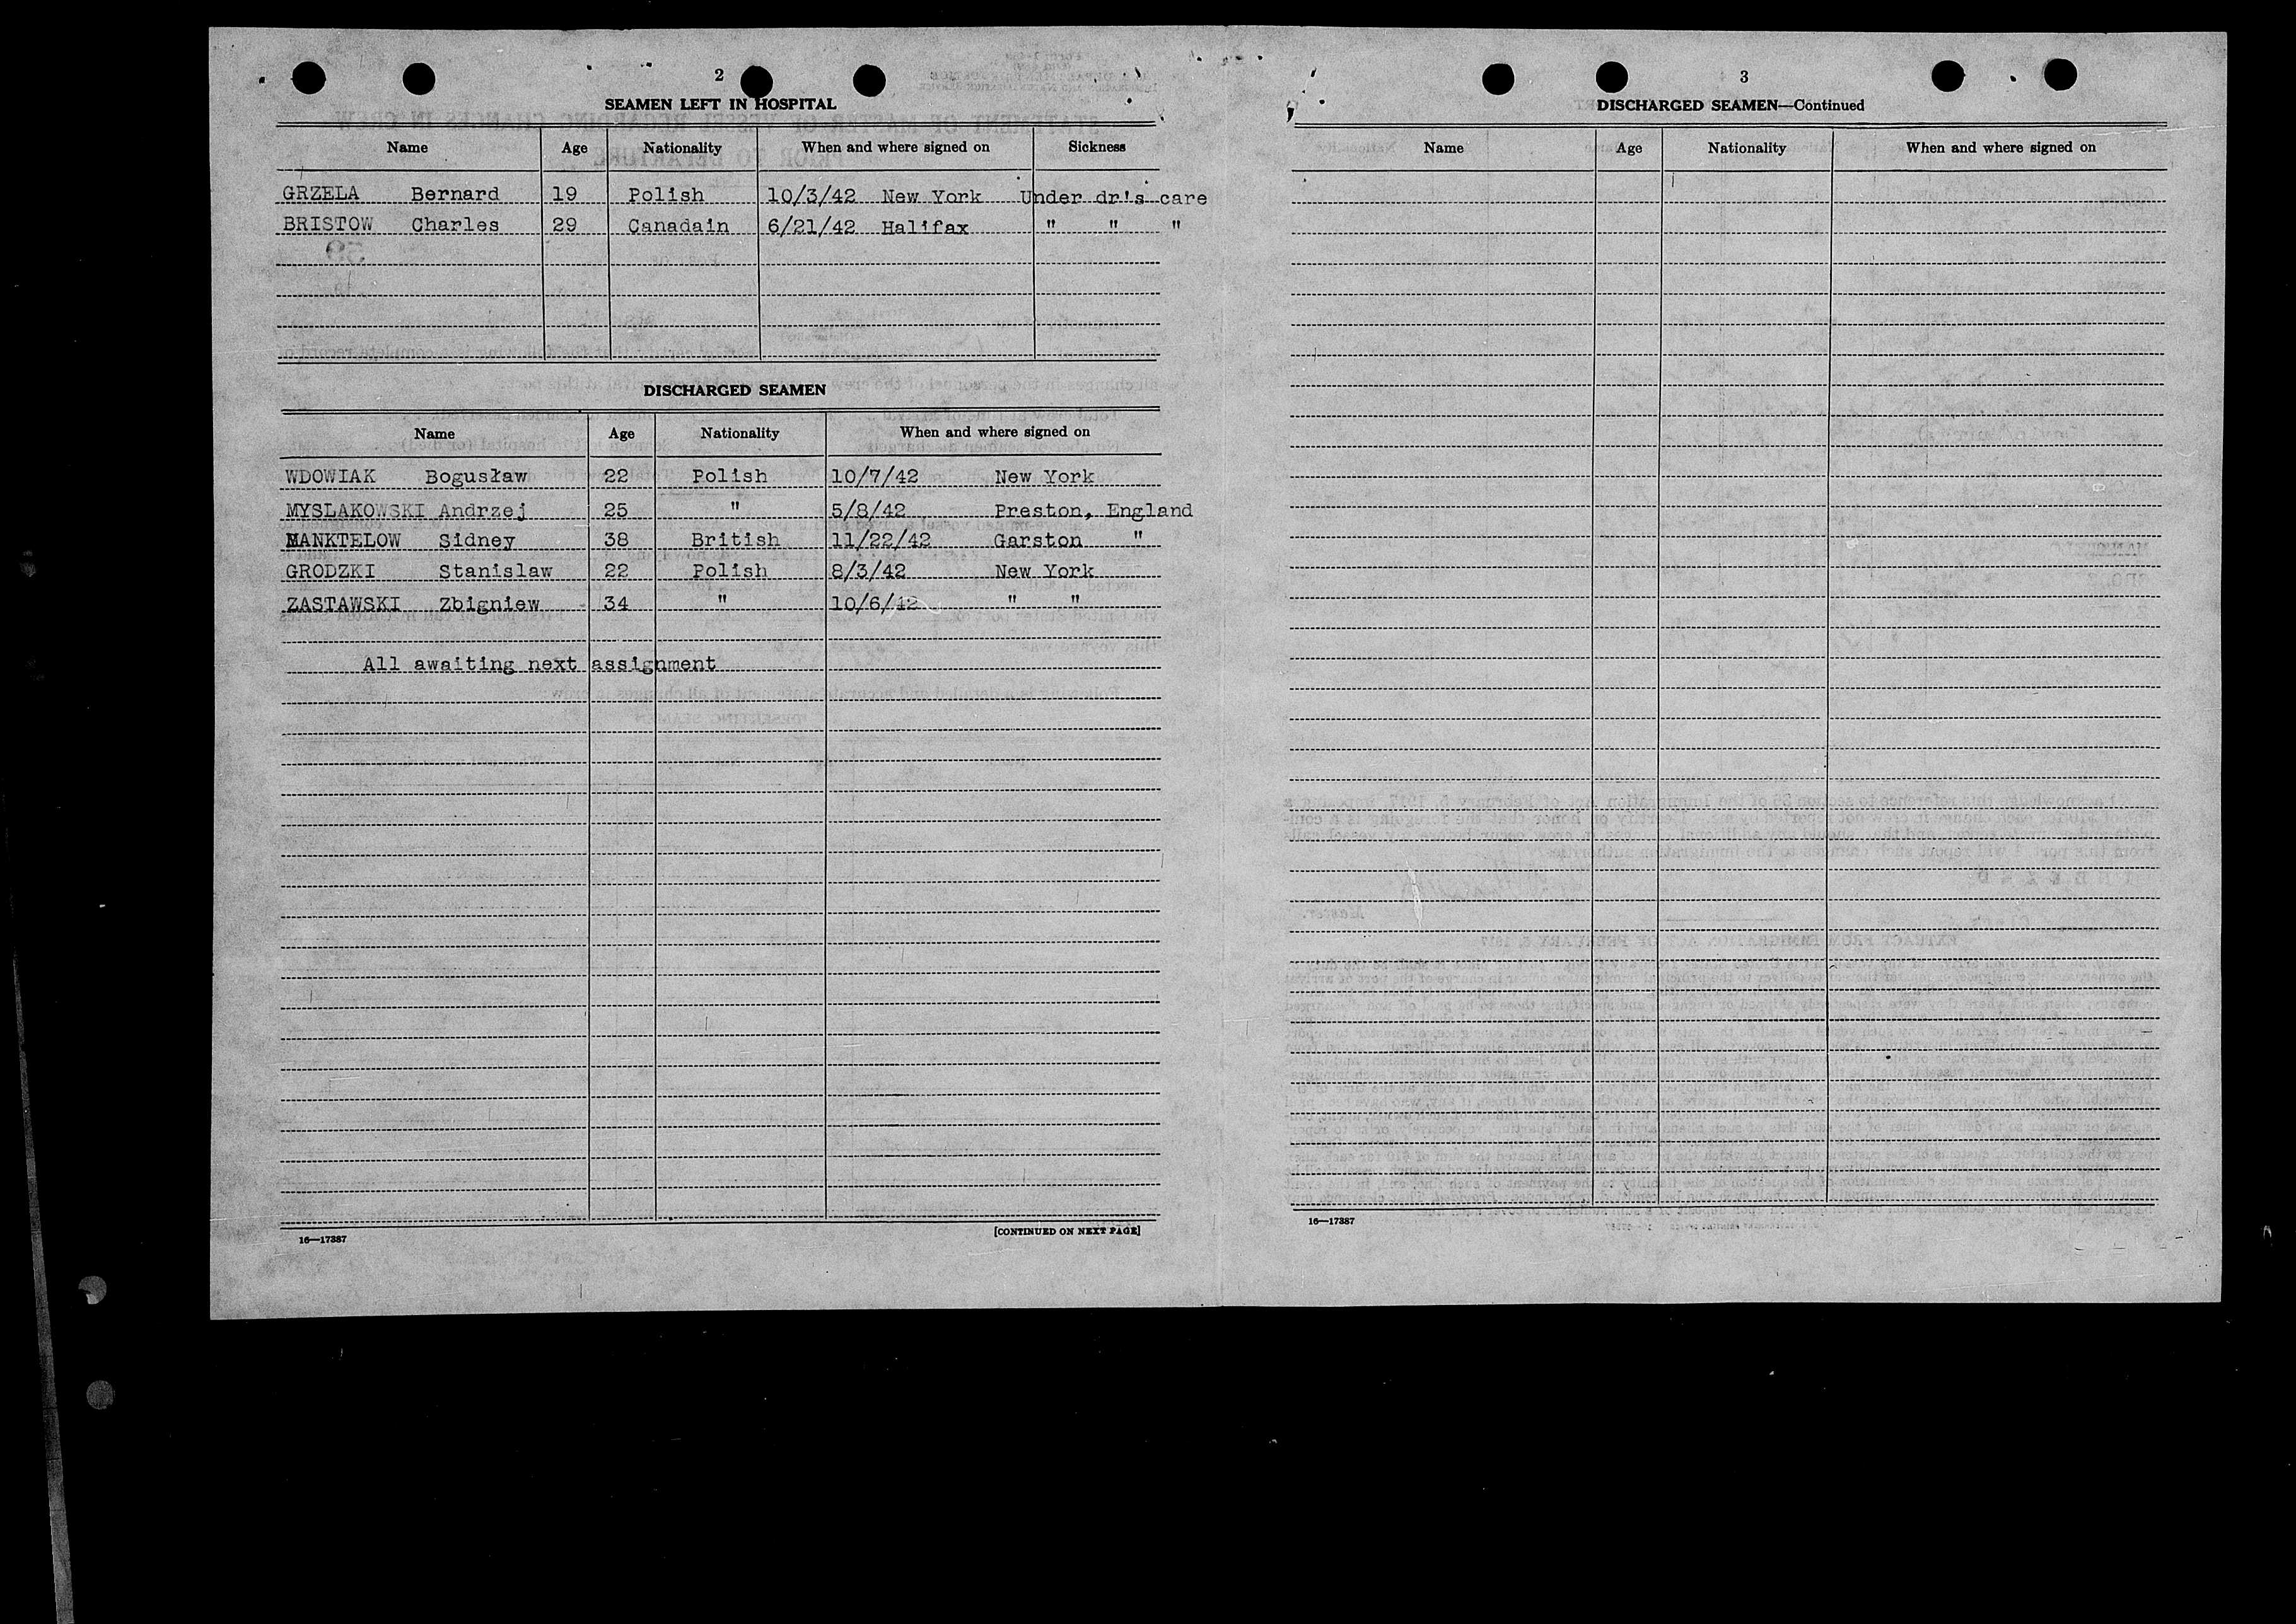 2
SEAMEN LEFT IN HOSPITAL
Name Age Nationality When and where signed on Sickness
GRZELA Bernard 19 Polish 10/3/42 New York Under dr's care
BRISTOW Charles 29 Canadain 6/21/42 Halifax " " "
DISCHARGED SEAMEN
Name Age Nationality When and where signed on
WDOWIAK Bogusław 22 Polish 10/7/42 New York
MYSLAKOWSKI Andrzej 25 " 5/8/42 Preston, England
MANKTELOW Sidney 38 British 11/22/42 Garston "
GRODZKI Stanislaw 22 Polish 8/3/42 New York
ZASTAWSKI Zbigniew 34 " 10/6/42 " "
All awaiting next assignment
16—17387 [CONTINUED ON NEXT PAGE]
3
DISCHARGED SEAMEN—Continued
Name Age Nationality When and where signed on
16—17387